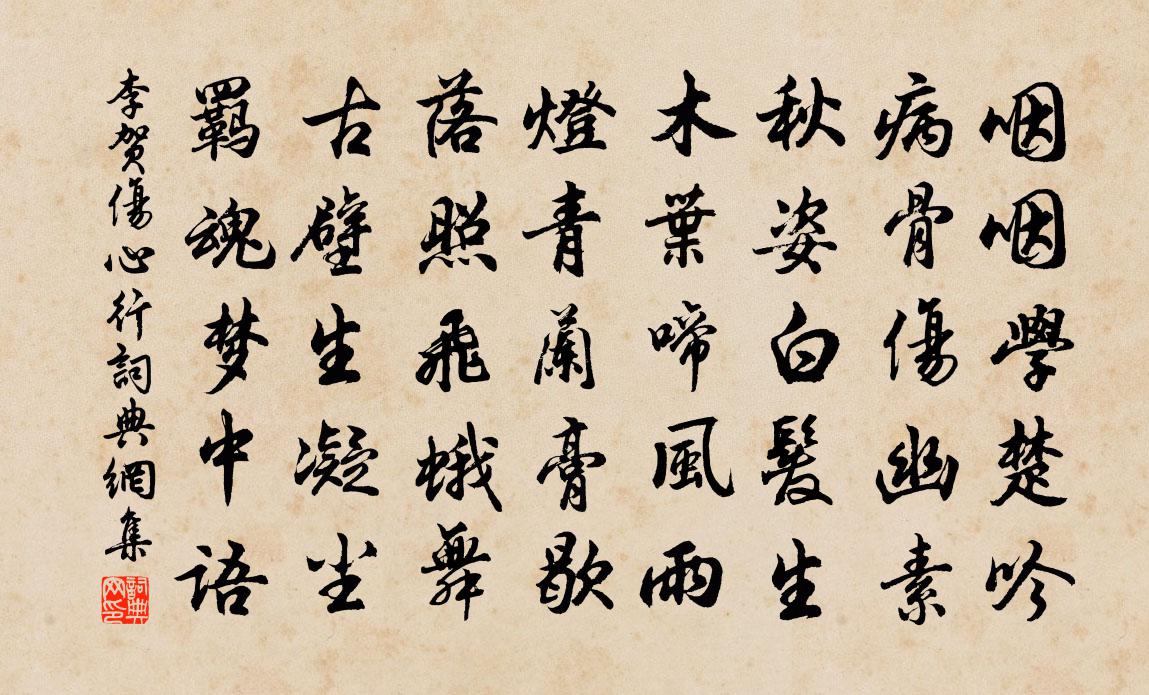 咽咽學楚吟
病骨傷幽素
秋姿白髮生
木葉啼風雨
燈青蘭膏歇
落照飛蛾舞
古壁生凝尘
羈魂梦中語
李贺傷心行詞典網集
詞典网印